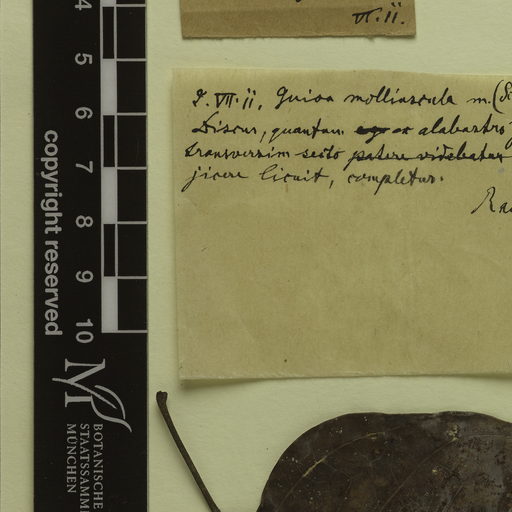 VI.ii.
2. VII.ii, Guioa molliuscula m. (S
Discus, quantum ex alabastro
transversim secto patere videbatur
jicere licuit, completus.
Ra
4
5
6
7
8
9
10
copyright reserved
M
BOTANISCHE
STAATSSAMML
MÜNCHEN